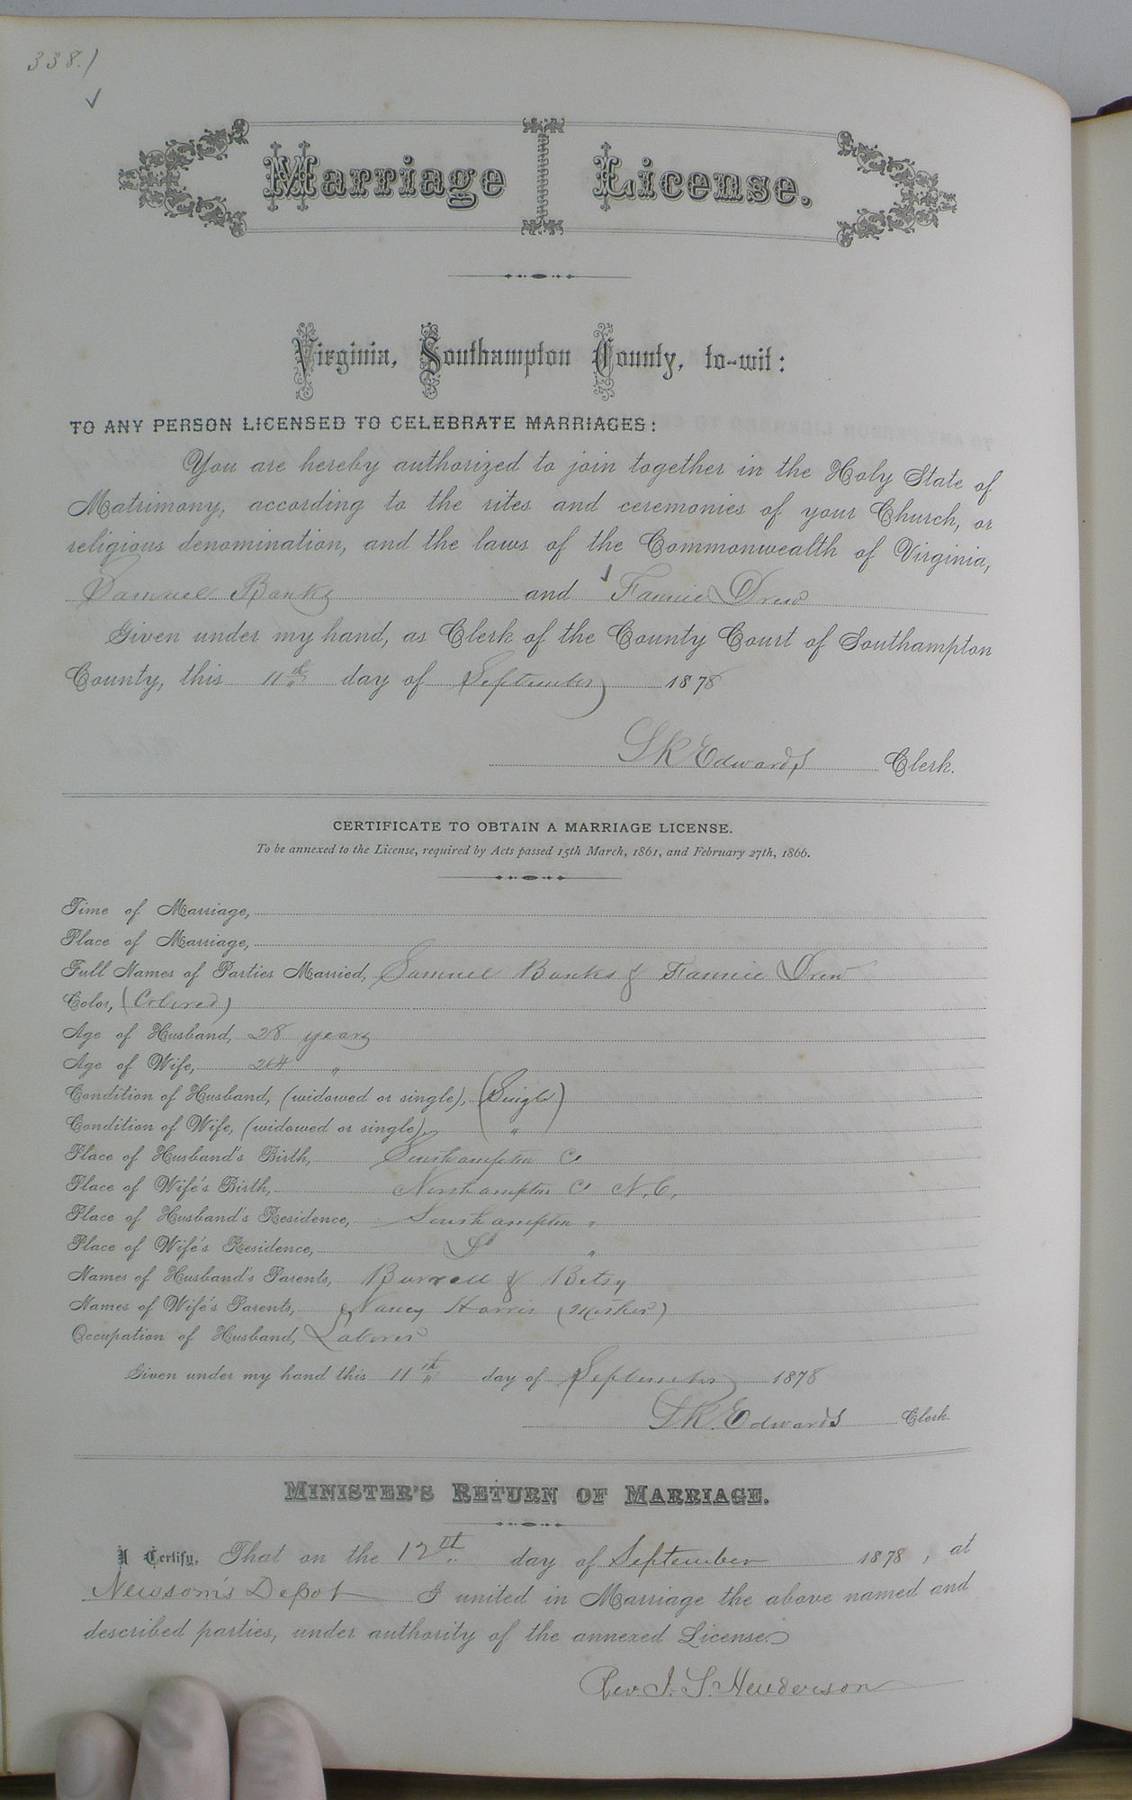 338.)
Marriage License.
Virginia, Southampton County, to-wit:
TO ANY PERSON LICENSED TO CELEBRATE MARRIAGES:
You are hereby authorized to join together in the Holy State of
Matrimony, according to the rites and ceremonies of your Church, or
religious denomination, and the laws of the Commonwealth of Virginia,
Samuel Banks and Fannie Drew
Given under my hand, as Clerk of the County Court of Southampton
County, this 11th day of September 1878
L R Edwards Clerk.
CERTIFICATE TO OBTAIN A MARRIAGE LICENSE.
To be annexed to the License, required by Acts passed 15th March, 1861, and February 27th, 1866.
Time of Marriage,
Place of Marriage,
Full Names of Parties Married, Samuel Banks & Fannie Drew
Color, (Colored)
Age of Husband, 28 years
Age of Wife, 24 "
Condition of Husband, (widowed or single), (Single)
Condition of Wife, (widowed or single), "
Place of Husband's Birth, Southampton Co
Place of Wife's Birth, Northampton Co N.C.
Place of Husband's Residence, Southampton "
Place of Wife's Residence, Do "
Names of Husband's Parents, Burwell & Betsy
Names of Wife's Parents, Nancy Harris (Mother)
Occupation of Husband, Laborer
Given under my hand this 11th day of September 1878
L R. Edwards Clerk
MINISTER'S RETURN OF MARRIAGE.
I Certify, That on the 12th day of September 1878, at
Newsom's Depot I united in Marriage the above named and
described parties, under authority of the annexed License.
Rev. J. S. Henderson